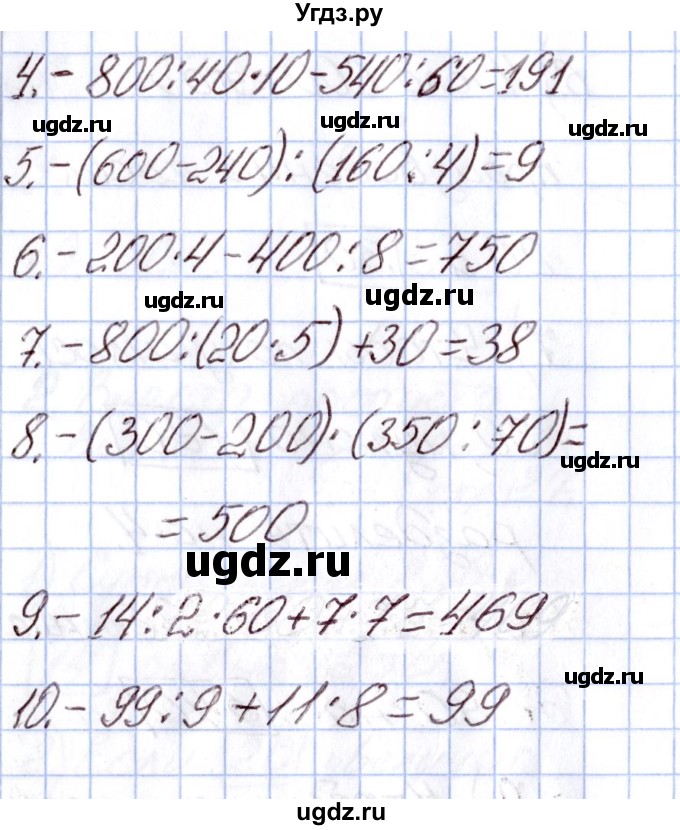 Угдз.ру
4.- 800:40·10-540:60=191
ugdz.ru ugdz.ru
5.-(600-240):(160:4)=9
6.-200·4-400:8=750
ugdz.ru ugdz.ru
7.-800:(20·5)+30=38
8.-(300-200)·(350:70)=
ugdz.ru
=500
ugdz.ru
9.-14:2·60+7·7=469
ugdz.ru
10.-99:9+11·8=99
ugdz.ru